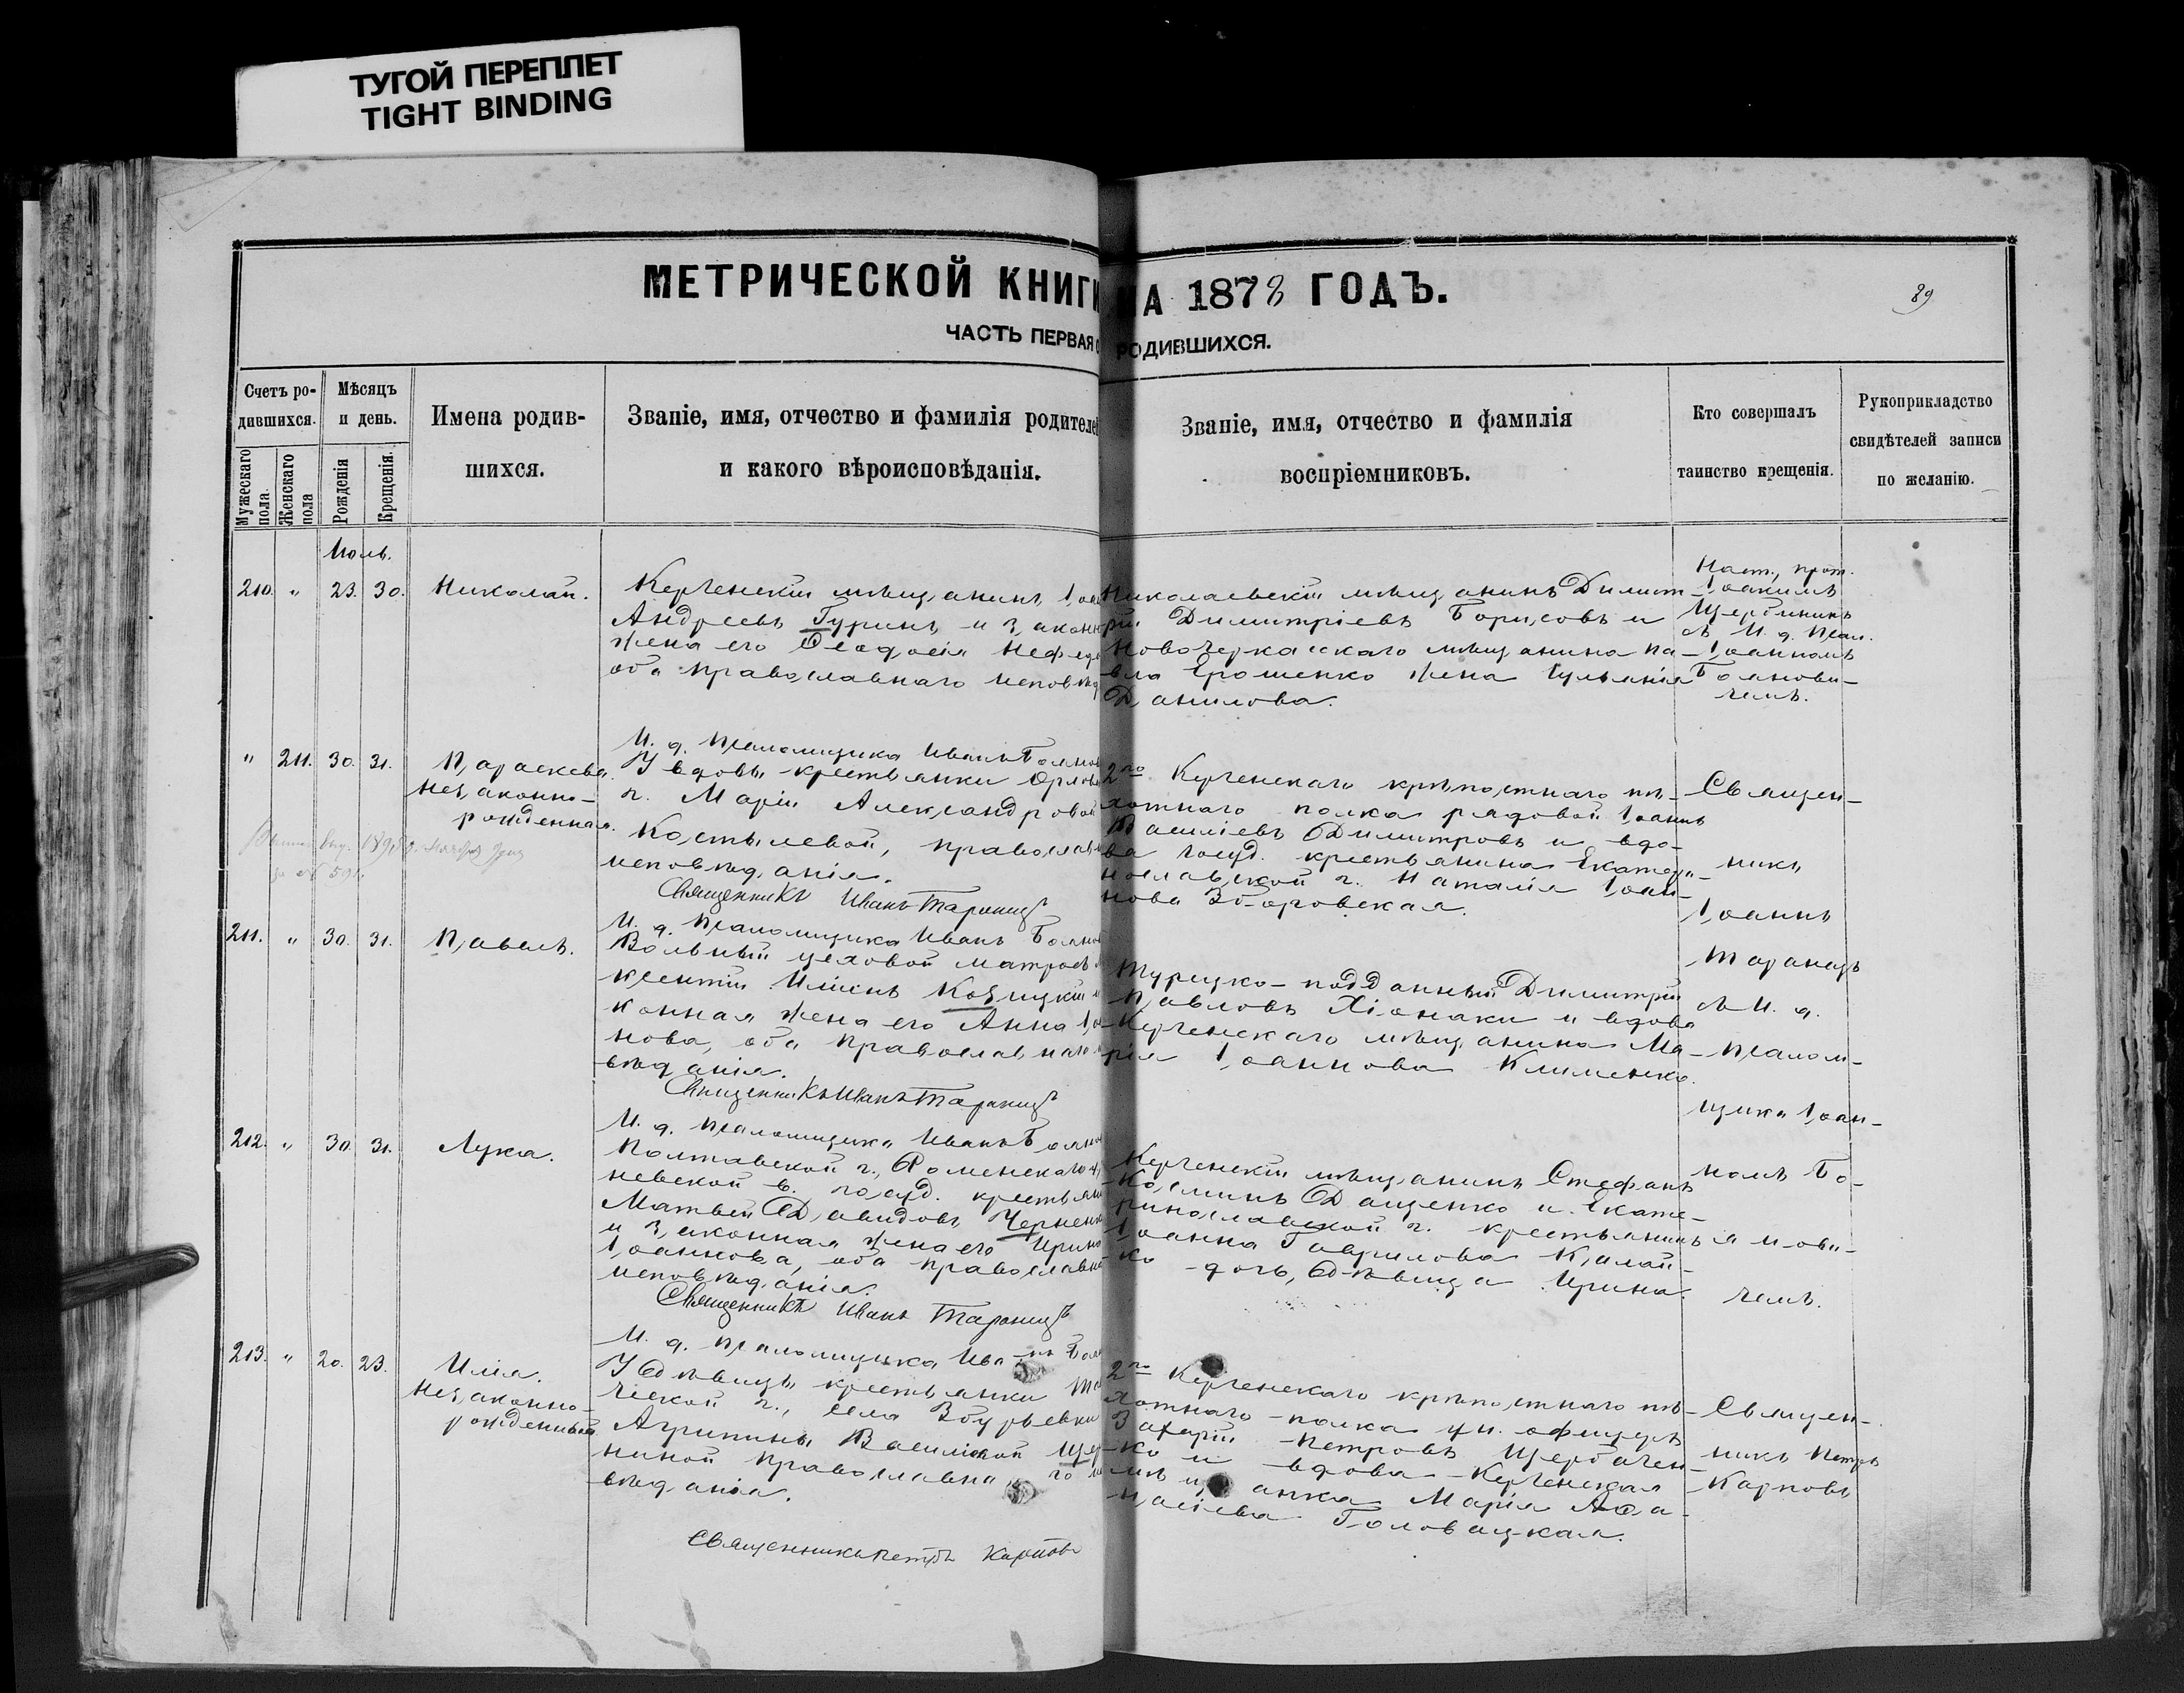 ТУГОЙ ПЕРЕПЛЕТ
TIGHT BINDING
МЕТРИЧЕСКОЙ КНИГИ НА 1878 ГОДЪ.
89
ЧАСТЬ ПЕРВАЯ О РОДИВШИХСЯ.
Счетъ ро-
дившихся.
Мужескаго пола.
Женскаго пола
Мѣсяцъ
и день.
Рожденія
Крещенія.
Имена родив-
шихся.
Званіе, имя, отчество и фамилія родителей
и какого вѣроисповѣданія.
Званіе, имя, отчество и фамилія
воспріемниковъ.
Кто совершалъ
таинство крещенія.
Рукоприкладство
свидѣтелей записи
по желанію.
Іюль.
210. " 23. 30. Николай.
Керченскій мѣщанинъ Іоан
Андреевъ Гуринъ и законн
жена его Ѳеодосія Нефедо
оба православнаго исповѣд
Николаевскій мѣщанинъ Димит-
рій Димитріевъ Борисовъ и
Новочеркасскаго мѣщанина Па-
вла Ерошенко жена Іуліанія
Данилова.
Наст., прот.
Іоакимъ
Щербининъ
съ И. д. псал.
Іоанномъ
Боянови-
чемъ.
И. д. псаломщика Иванъ Боянов
" 211. 30. 31. Параскева.
Незаконно-
рожденная.
У вдовы крестьянки Орлов
г. Маріи Александровой
Костылевой, православн
исповѣданія.
Священникъ Иванъ Таранецъ
2го Керченскаго крѣпостнаго пѣ-
хотнаго полка рядовой Іоаннъ
Василіевъ Димитровъ и вдо-
ва госуд. крестьянина Екатери-
нославской г. Наталія Іоан-
нова Зборовская.
Священ-
никъ
Іоаннъ
Таранецъ
съ И. д.
псалом-
щика Іоан-
номъ Бо-
янови-
чемъ.
И. д. псаломщика Иванъ Боянов
211. " 30. 31. Павелъ.
Вольный цеховой матросъ
кентій Иліинъ Козицкій и
конная жена его Анна Іо
нова, оба православнаго
вѣданія.
Священникъ Иванъ Таранецъ
Турецко-подданный Димитрій
Павловъ Хіонаки и вдова
Керченскаго мѣщанина Ма-
рія Іоаннова Клименко.
И. д. псаломщика Иванъ Боянов
212. " 30. 31. Лука.
Полтавской г., Роменскаго у.
невской в. госуд. крестьян
Матвей Давидовъ Черненк
и законная жена его Ирина
Іоаннова, оба православна
исповѣданія.
Священникъ Иванъ Таранецъ
Керченскій мѣщанинъ Стефанъ
Косминъ Даценко и Екате-
ринославской г. крестьянина
Іоанна Гаврилова
дочь, дѣвица Ирина.
И. д. псаломщика Иванъ Боя
213. " 20. 23. Илія.
Незаконно-
рожденный.
У дѣвицы крестьянки
ческой г., села Збурьевки
Агрипины Василіевой
ниной православнаго
вѣданія.
Священникъ Петръ Карповъ
2го Керченскаго крѣпостнаго пѣ-
хотнаго полка ун. офицеръ
Захарій Петровъ Щербачен-
ко и вдова Керченская
мѣщанка Марія Аѳа-
насіева Головацкая.
Священ-
никъ Петръ
Карповъ